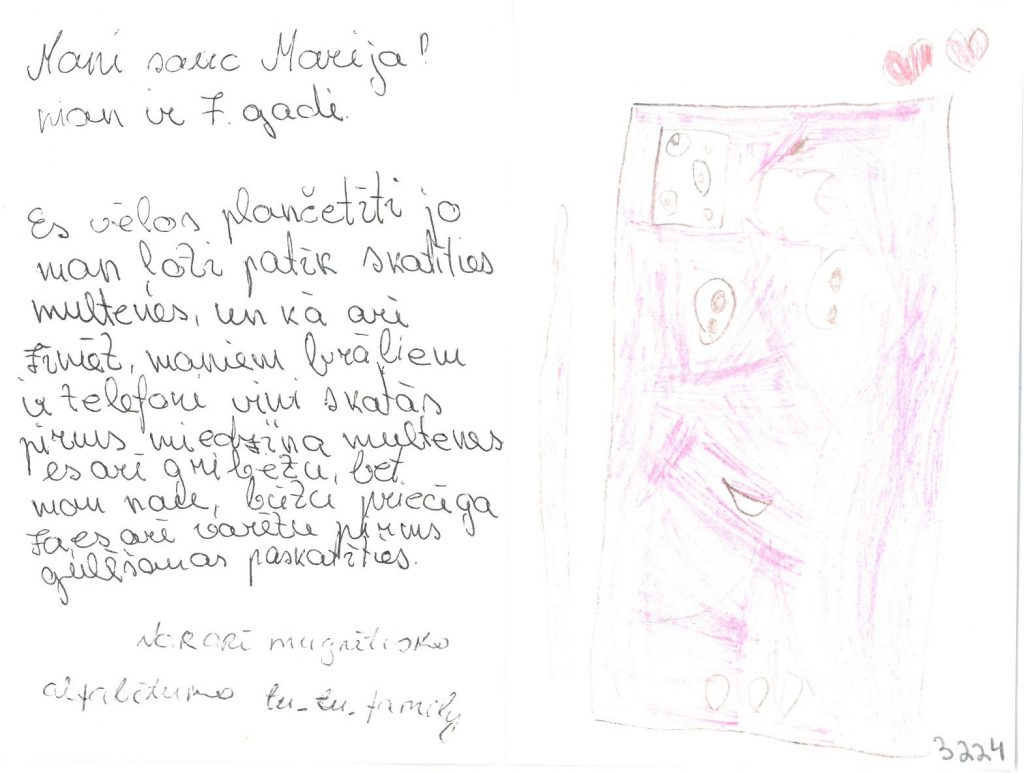 Mani sauc Marija!
man ir 7. gadi.
Es vēlos plančetīti jo
man ļoži patīk skatīties
multenes, un kā arī
zīmēt, maniem brāļiem
ir telefoni viņi skatās
pirms miedziņa multenes
es arī gribēžu, bet
man nau, būžu priecīga
ja es arī varētu pirms
gulēšanas paskatīties.
Var arī magnētisko
alfabētumo tu_tu_family
3224